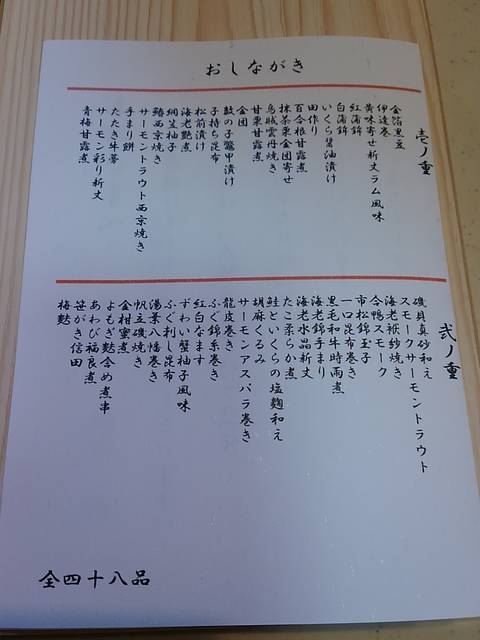 おしながき
壱ノ重
金箔黒豆
伊達巻
黄味寄せ祈丈ラム風味
紅蒲鉾
白蒲鉾
いくら醤油漬け
田作り
百合根甘露煮
抹茶栗金団寄せ
烏賊雲丹焼き
甘栗甘露煮
金団
数の子鼈甲漬け
子持ち昆布
松前漬け
海老艶煮
網笠柚子
鰆西京焼き
サーモントラウト西京焼き
手まり餅
たたき牛蒡
サーモン彩り祈丈
青梅甘露煮
弐ノ重
磯貝真砂和え
スモークサーモントラウト
海老袱紗焼き
合鴨スモーク
市松錦玉子
一口昆布巻き
黒毛和牛時雨煮
海老錦手まり
海老水晶祈丈
たこ柔らか煮
鮭といくらの塩麹和え
胡麻くるみ
サーモンアスパラ巻き
龍皮巻き
ふぐ錦糸巻き
紅白なます
ずわい蟹柚子風味
ふぐ刺し昆布
湯葉八幡巻き
帆立磯焼き
金柑蜜煮
よもぎ麩含め煮串
あわび福良煮
笹がき信田
梅麩
全四十八品